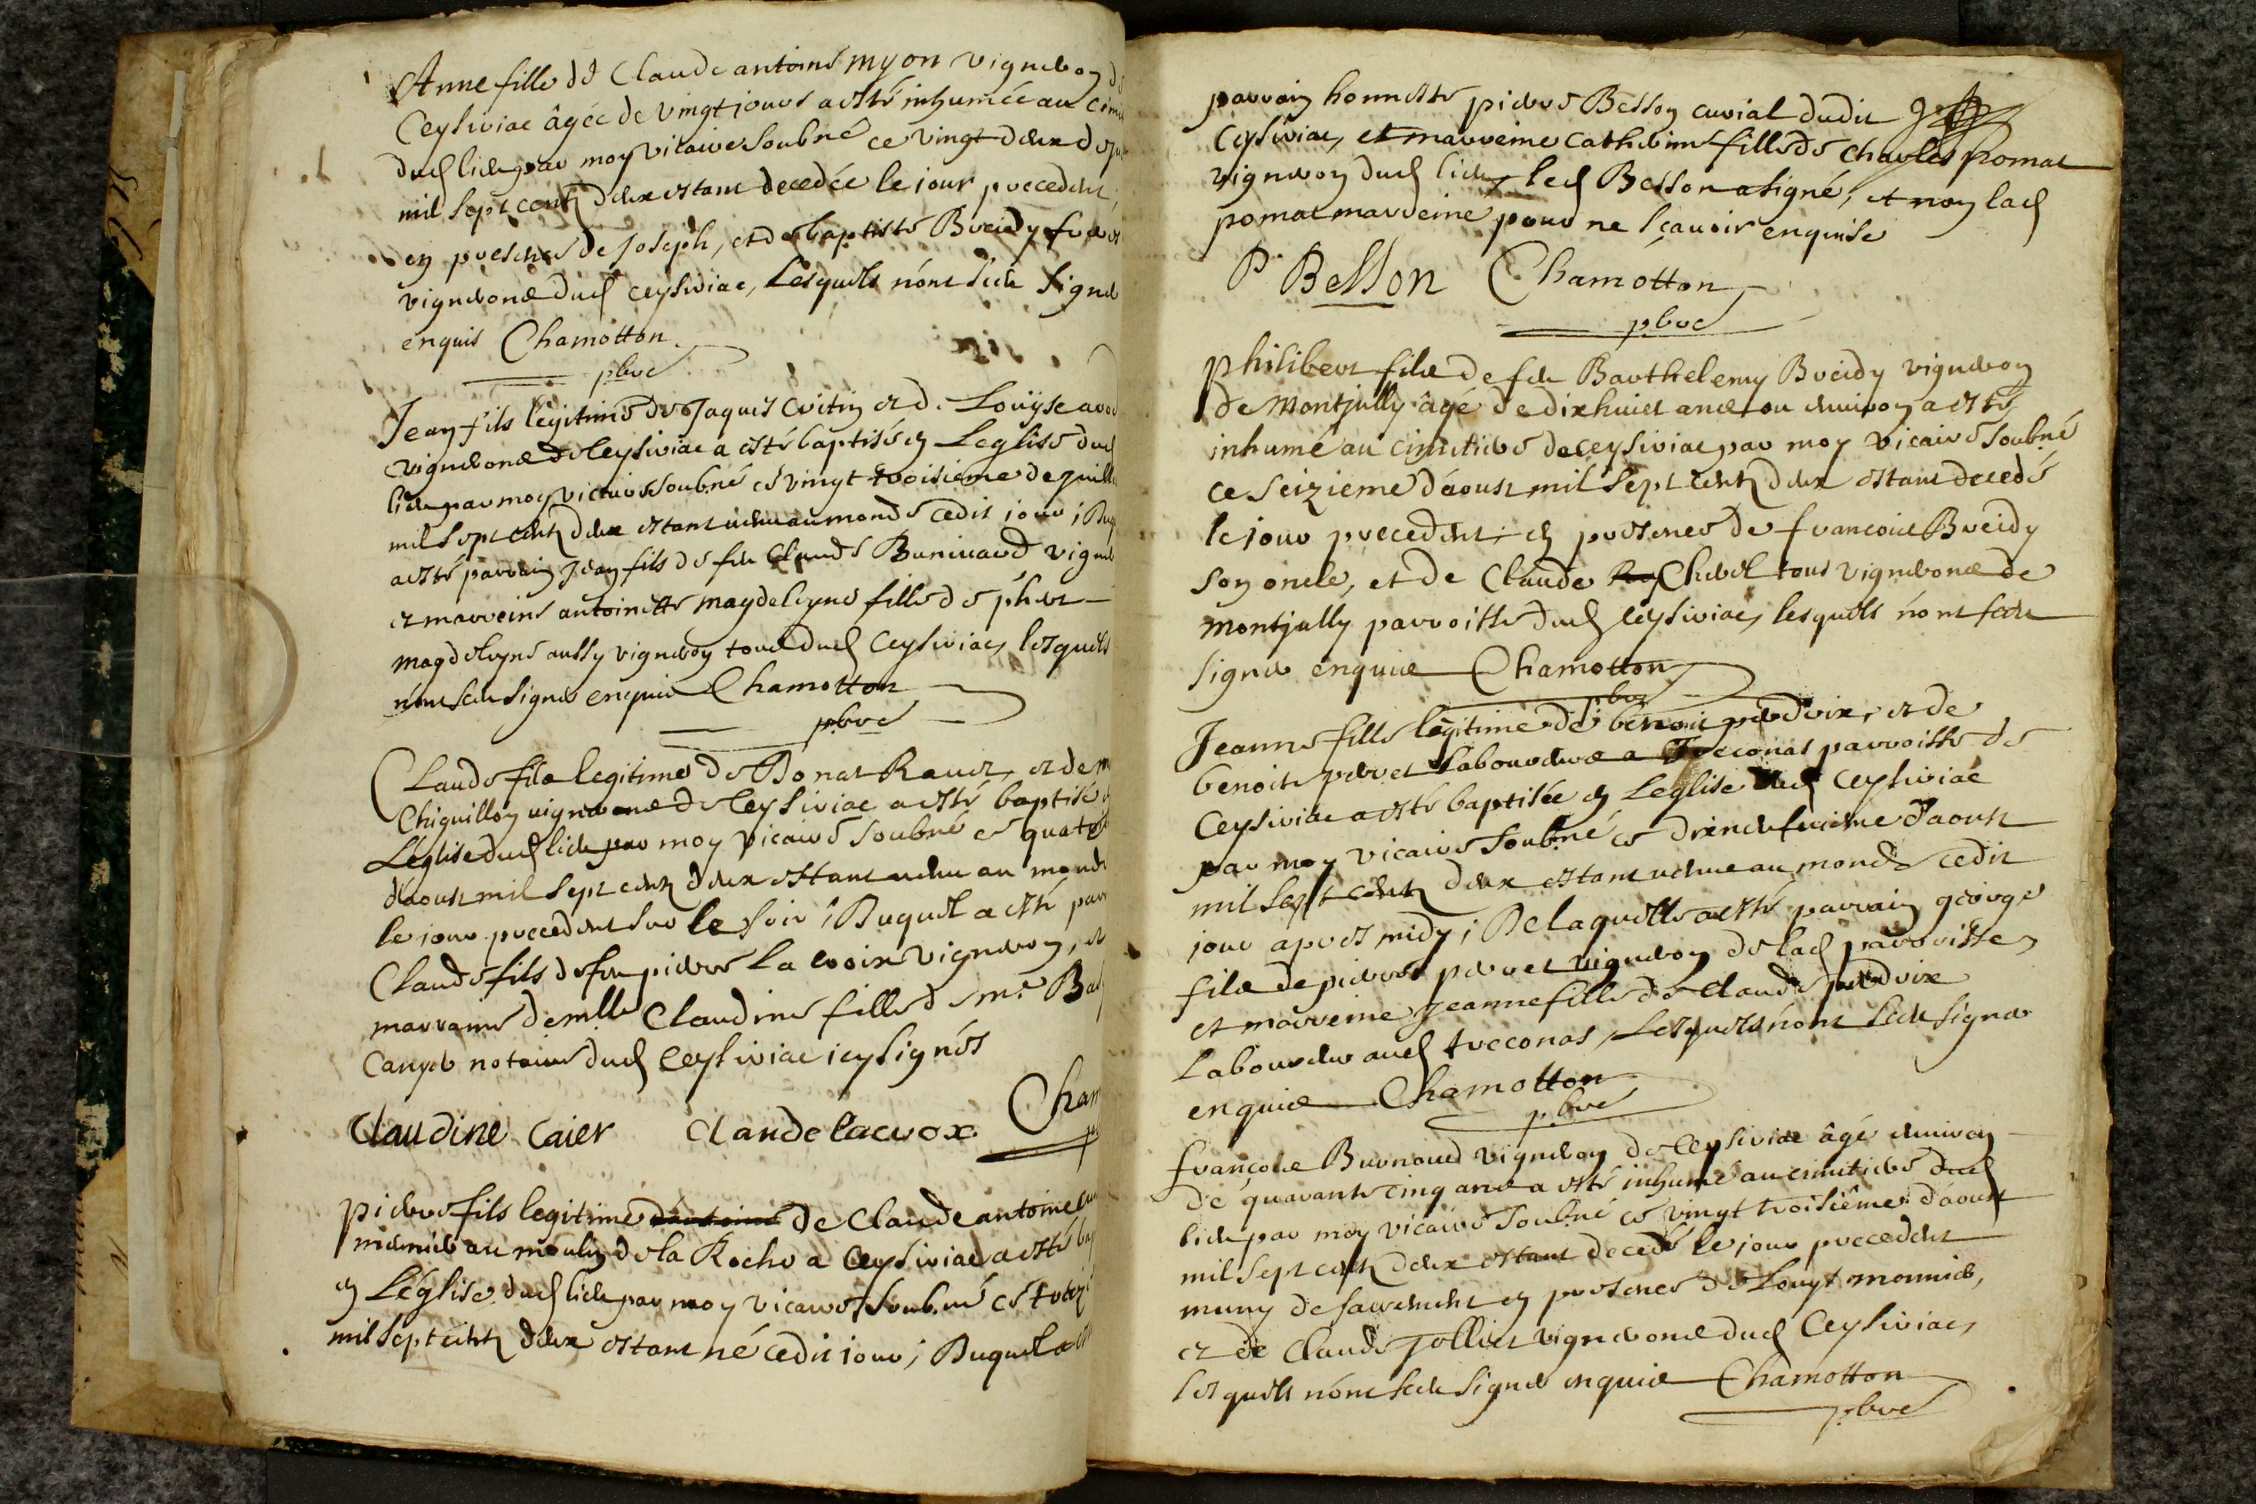 Anne fille de Claude antoine myon vigneron d
Ceysiriac âgée de vingt jours a esté inhumée au Cimi
dud lieu par moy vicaire soubné ce vingt deux de
mil sept centz deux estant decedée le jour precedent,
en presence de Joseph, et de baptiste Breidy freres
vignerons dud ceysiriac, Lesquels n'ont sceu signer
enquis Chamotton
pbre
Jean fils legitime de Jaques Critin et de Louÿse
vignerons de Ceysiriac a esté baptisé en Leglise dud
lieu par moy vicaire soubné ce vingt troisieme de juille
mil sept centz deux estant venu au monde cedit jour ;
a esté parrain Jean fils de feu Claude Buniuard vigne
et marreine antoinette magdeleyne fille de phert
magdeleyne aussy vigneron tous dud Ceysiriac, lesquels
n'ont sceu signer enquis Chamotton
pbre
Claude fils legitime de Donat Ravet, et de m
Chiquillon vignerons de Ceysiriac a esté baptisé
L'église dud lieu par moy vicaire soubné ce quat
d'aoust mil sept centz deux estant venu au monde
le jour precedent sur le soir ; Duquel a esté parr
Claude fils de feu pierre la croix vigneron, et
marrame demlle Claudine fille de mre Bal
Cayer notaire dud Ceysiriac icy signés
Claudine Caier Claude lacrox Cham
pierre fils legitime d'antoine de Claude antoine
meunier au moulin de la Roche a Ceysiriac a esté bap
en L'église dud lieu par moy vicaire soubné ce
mil sept centz deux estant né cedit jour ; Duquel a
parrain honneste pierre Besson curial dudit
Ceysiriac, et marreine Catherine fille de Charles pomat
vigneron dud lieu, led Besson a signé, et non lad
pomat marreine pour ne sçavoir enquise
P. Besson Chamotton
pbre
Philibert fils de feu Barthelemy Breidy vigneron
de Montjully âgé de dixhuict ans ou environ a esté
inhumé au cimetiere de ceysiriac par moy vicaire soubné
ce seizieme d'aoust mil sept centz deux estant decedé
le jour precedent en presence de francois Breidy
son oncle, et de Claude Chevel tous vignerons de
montjully parroisse dud Ceysiriac, lesquels n'ont sceu
signer enquis Chamotton
pbre
Jeanne fille legitime de benoit perdrix, et de
benoite perret laboureurs a Treconas parroisse de
Ceysiriac a esté baptisée en Leglise dud Ceysiriac
par moy vicaire soubné ce dixneufvieme d'aoust
mil sept centz deux estant venue au monde cedit
jour apres midy ; De laquelle a esté parrain george
fils de pierre perret vigneron de lad parroisse,
et marreine Jeanne fille de Claude perdrix
Laboureur aud treconas, Lesquels n'ont sceu signer
enquis Chamotton
pbre
françois Burnoud vigneron de Ceysiriac âgé environ
de quarante cinq ans a esté inhumé au cimetiere dud
lieu par moy vicaire soubné ce vingt troisiême d'aoust
mil sept centz deux estant decedé le jour precedent
muny de sacrement en presence de Louys monnier,
et de Claude Jolliet vignerons dud Ceysiriac,
lesquels n'ont sceu signer enquis Chamotton
pbre